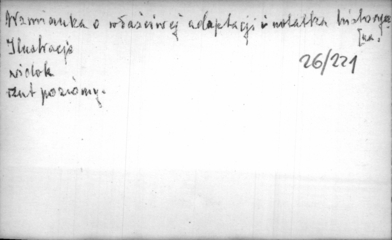 Wzmianka o właściwej adaptacji i notatka historycz
[na.
Ilustracje
26/221
widok
rzut poziomy.